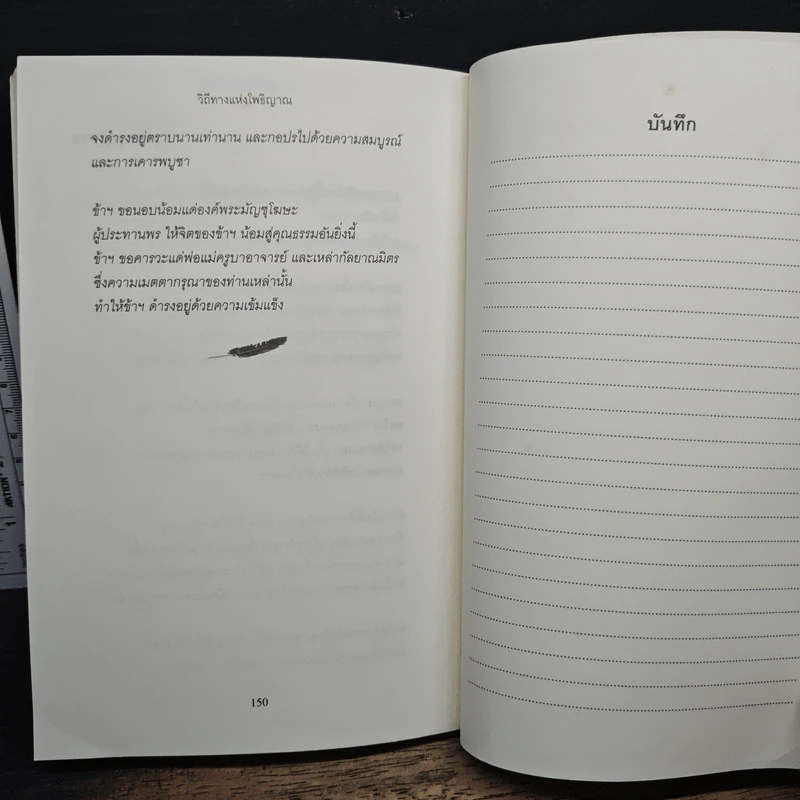 วิถีทางแห่งโพธิญาณ
จงดำรงอยู่ตราบนานเท่านาน และกอปรไปด้วยความสมบูรณ์
และการเคารพบูชา
ข้าฯ ขอนอบน้อมแด่องค์พระมัญชุโฆษะ
ผู้ประทานพร ให้จิตของข้าฯ น้อมสู่คุณธรรมอันยิ่งนี้
ข้าฯ ขอคารวะแด่พ่อแม่ครูบาอาจารย์ และเหล่ากัลยาณมิตร
ซึ่งความเมตตากรุณาของท่านเหล่านั้น
ทำให้ข้าฯ ดำรงอยู่ด้วยความเข้มแข็ง
150
บันทึก